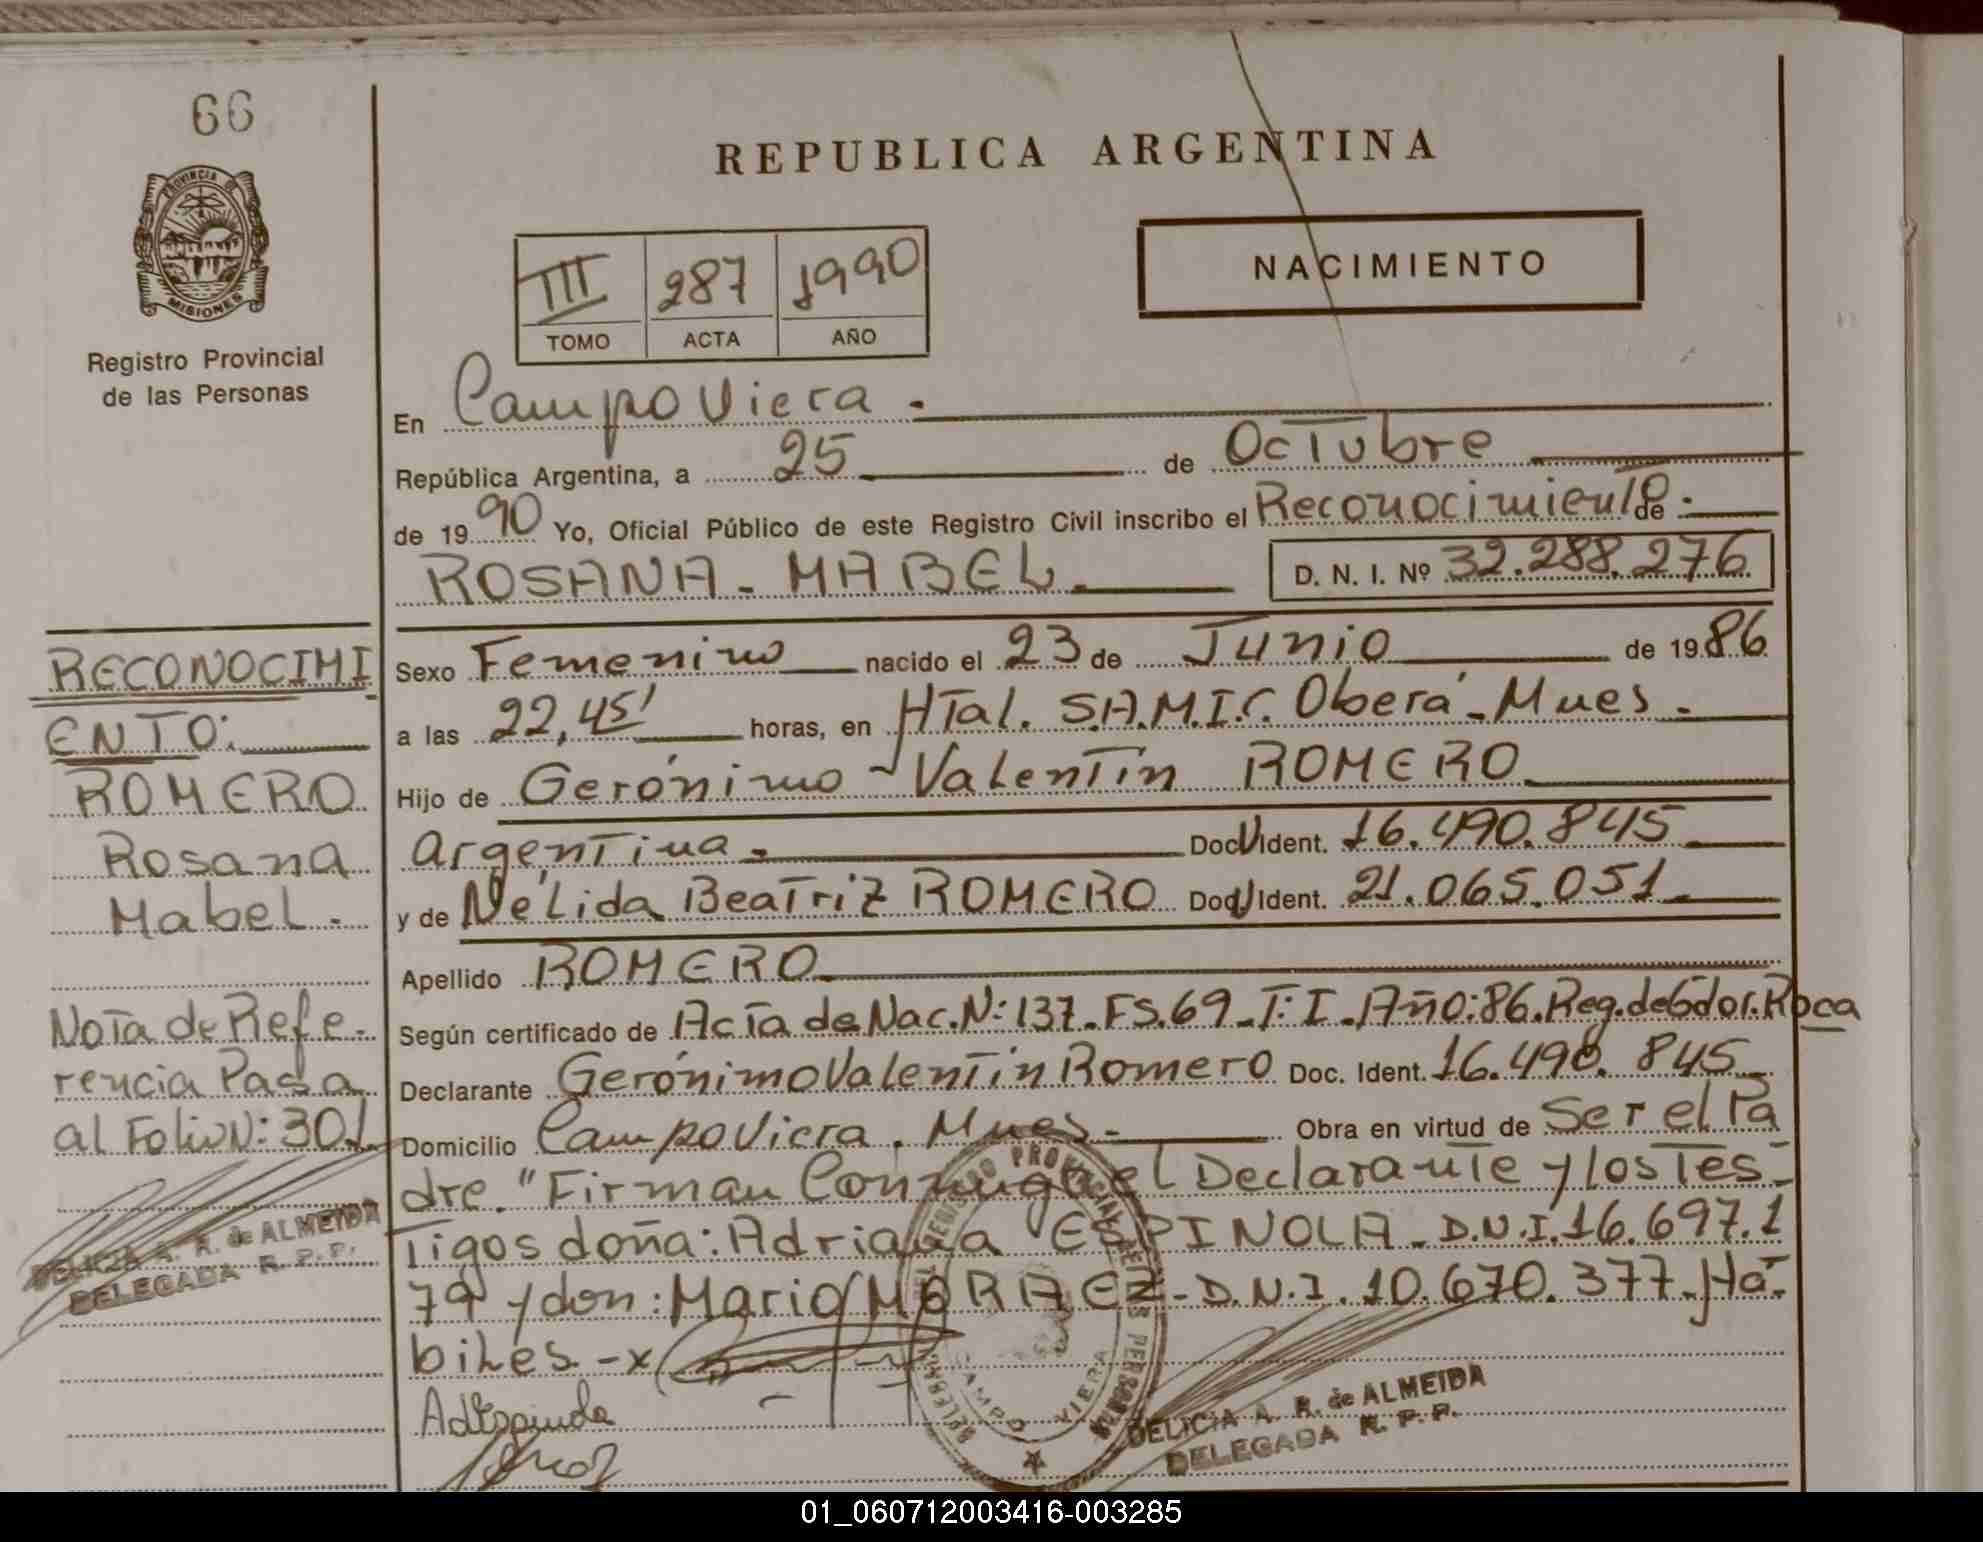 66
PROVINCIA DE
MISIONES
Registro Provincial
de las Personas
REPUBLICA ARGENTINA
III 287 1990
TOMO ACTA AÑO
NACIMIENTO
En Campo Viera.
República Argentina, a 25 de Octubre
de 1990 Yo, Oficial Público de este Registro Civil inscribo el Reconocimiento de
ROSANA - MABEL D. N. I. Nº 32.288.276
Sexo Femenino nacido el 23 de Junio de 1986
a las 22,45' horas, en HTal. S.A.M.I.C. Oberá - Mnes.
Hijo de Gerónimo - Valentín ROMERO
Argentina. Doc. Ident. 16.490.845
y de Nélida Beatriz ROMERO Doc. Ident. 21.065.051
Apellido ROMERO
Según certificado de Acta de Nac. N: 137. FS. 69 - T: I. Año: 86. Reg. de Gdor. Roca
Declarante Gerónimo Valentín Romero Doc. Ident. 16.490.845
Domicilio Campo Viera. Mnes. Obra en virtud de Ser el Pa
dre. "Firman Conmigo el Declarante y los Tes-
Tigos doña: Adriana ESPINOLA - D.N.I. 16.697.1
79 y don: Mario MORAEZ - D.N.I. 10.670.377. Há-
biles - x
RECONOCIMI
ENTO:
ROMERO
Rosana
Mabel.
Nota de Refe-
rencia Pasa
al Folio N: 301
DELICIA A. R. de ALMEIDA
DELEGADA R. P. P.
CAMPO VIERA
DELICIA A. R. de ALMEIDA
DELEGADA R. P. P.
01_060712003416-003285